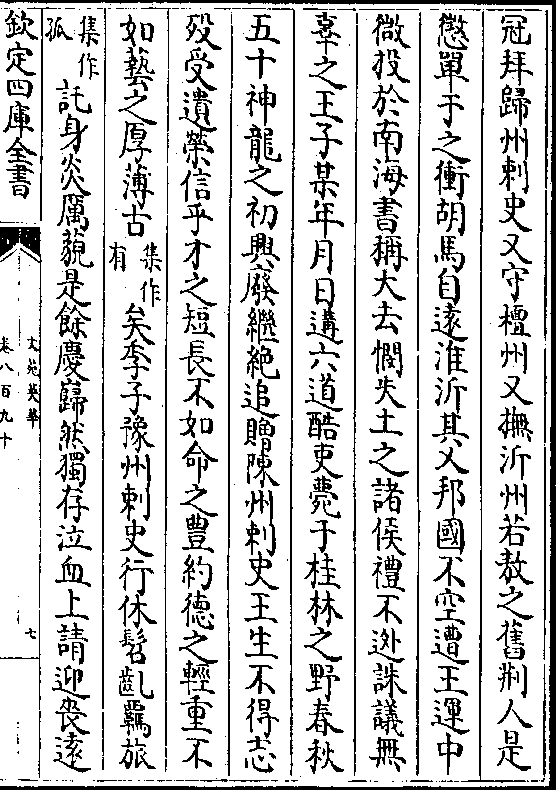 冠拜歸州刺史又守檀州又撫沂州若敖之舊荆人是
懲單于之衝胡馬自逺淮沂其乂邦國不空遭王運中
微投於南海書稱大去憫失土之諸侯禮不逃誅議無
辜之王子某年月日遘六道酷吏薨于桂林之野春秋
五十神龍之初興廢繼絶追贈陳州刺史王生不得志
歿受遺榮信乎才之短長不如命之豐約德之輕重不
如藝之厚薄古集作有矣季子豫州刺史行休髫齓羈旅
集作孤託身炎厲藐是餘慶巋然獨存泣血上請迎喪逺
欽定四庫全書
文苑英華
卷八百九十
七